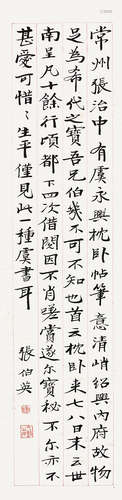 常州張治中有虞永興枕卧帖筆意清峭紹興內府故物
足為希代之寶吾兄伯幾不可不知也首云枕卧來七八日末云世
南呈凡十餘行頃都下四次借閱因不肖嗟賞遂尔寶秘不尔亦不
甚愛可惜可惜生平僅見此一種虞書耳
張伯英